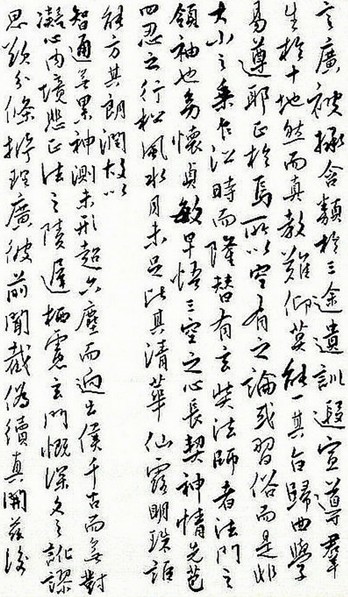 言廣被拯含類於三途遺訓遐宣導群
生於十地然而真教難仰莫能一其旨歸曲學
易遵耶正於焉所以空有之論或習俗而是非
大小之乘乍沿時而隆替有玄奘法師者法門之
領袖也幼懷貞敏早悟三空之心長契神情先苞
四忍之行松風水月未足比其清華仙露明珠詎
能方其朗潤故以
智通無累神測未形超六塵而迥出隻千古而無對
凝心內境悲正法之陵遲栖慮玄門慨深文之訛謬
思欲分條析理廣彼前聞截偽續真開茲後